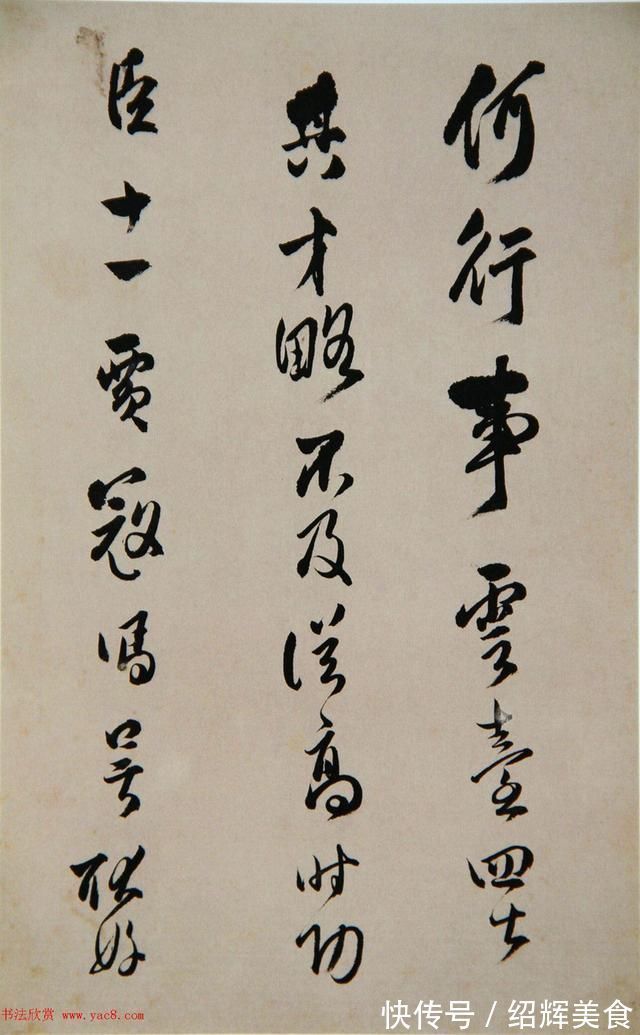 何行事雲臺四七
其才略不及從高時功
臣十一賈寇馮吳耿好
书法欣赏 www.yac8.com
快传号 / 绍辉美食